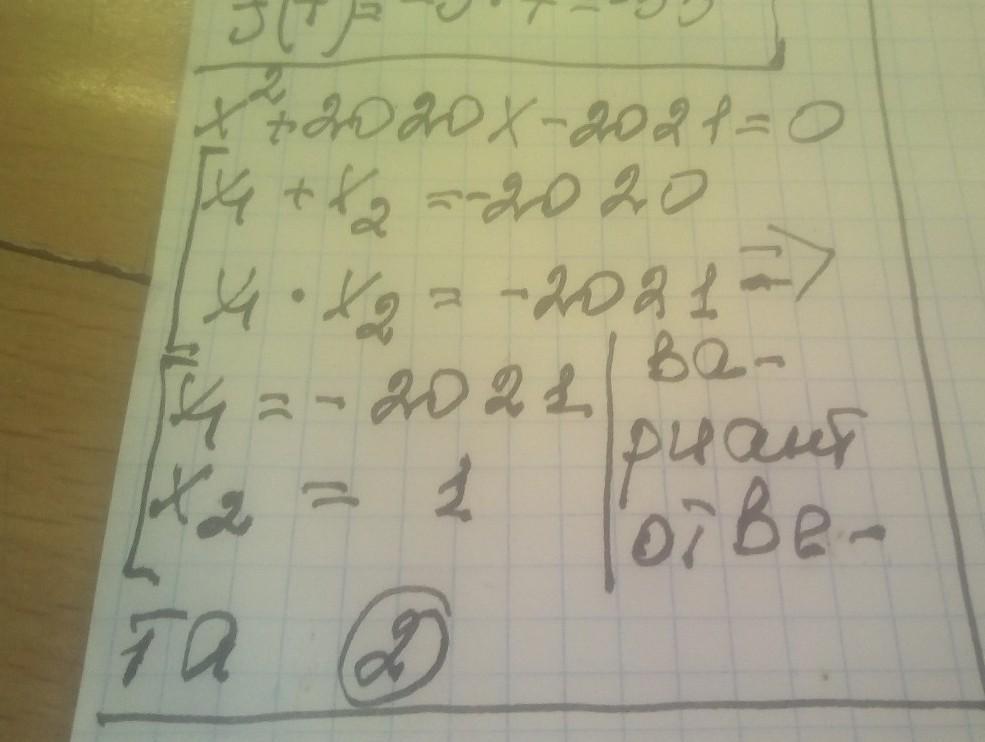 x² + 2020x - 2021 = 0
x₁ + x₂ = -2020
x₁ · x₂ = -2021 =>
x₁ = - 2021
x₂ = 1
ва-
риант
отве-
та 2